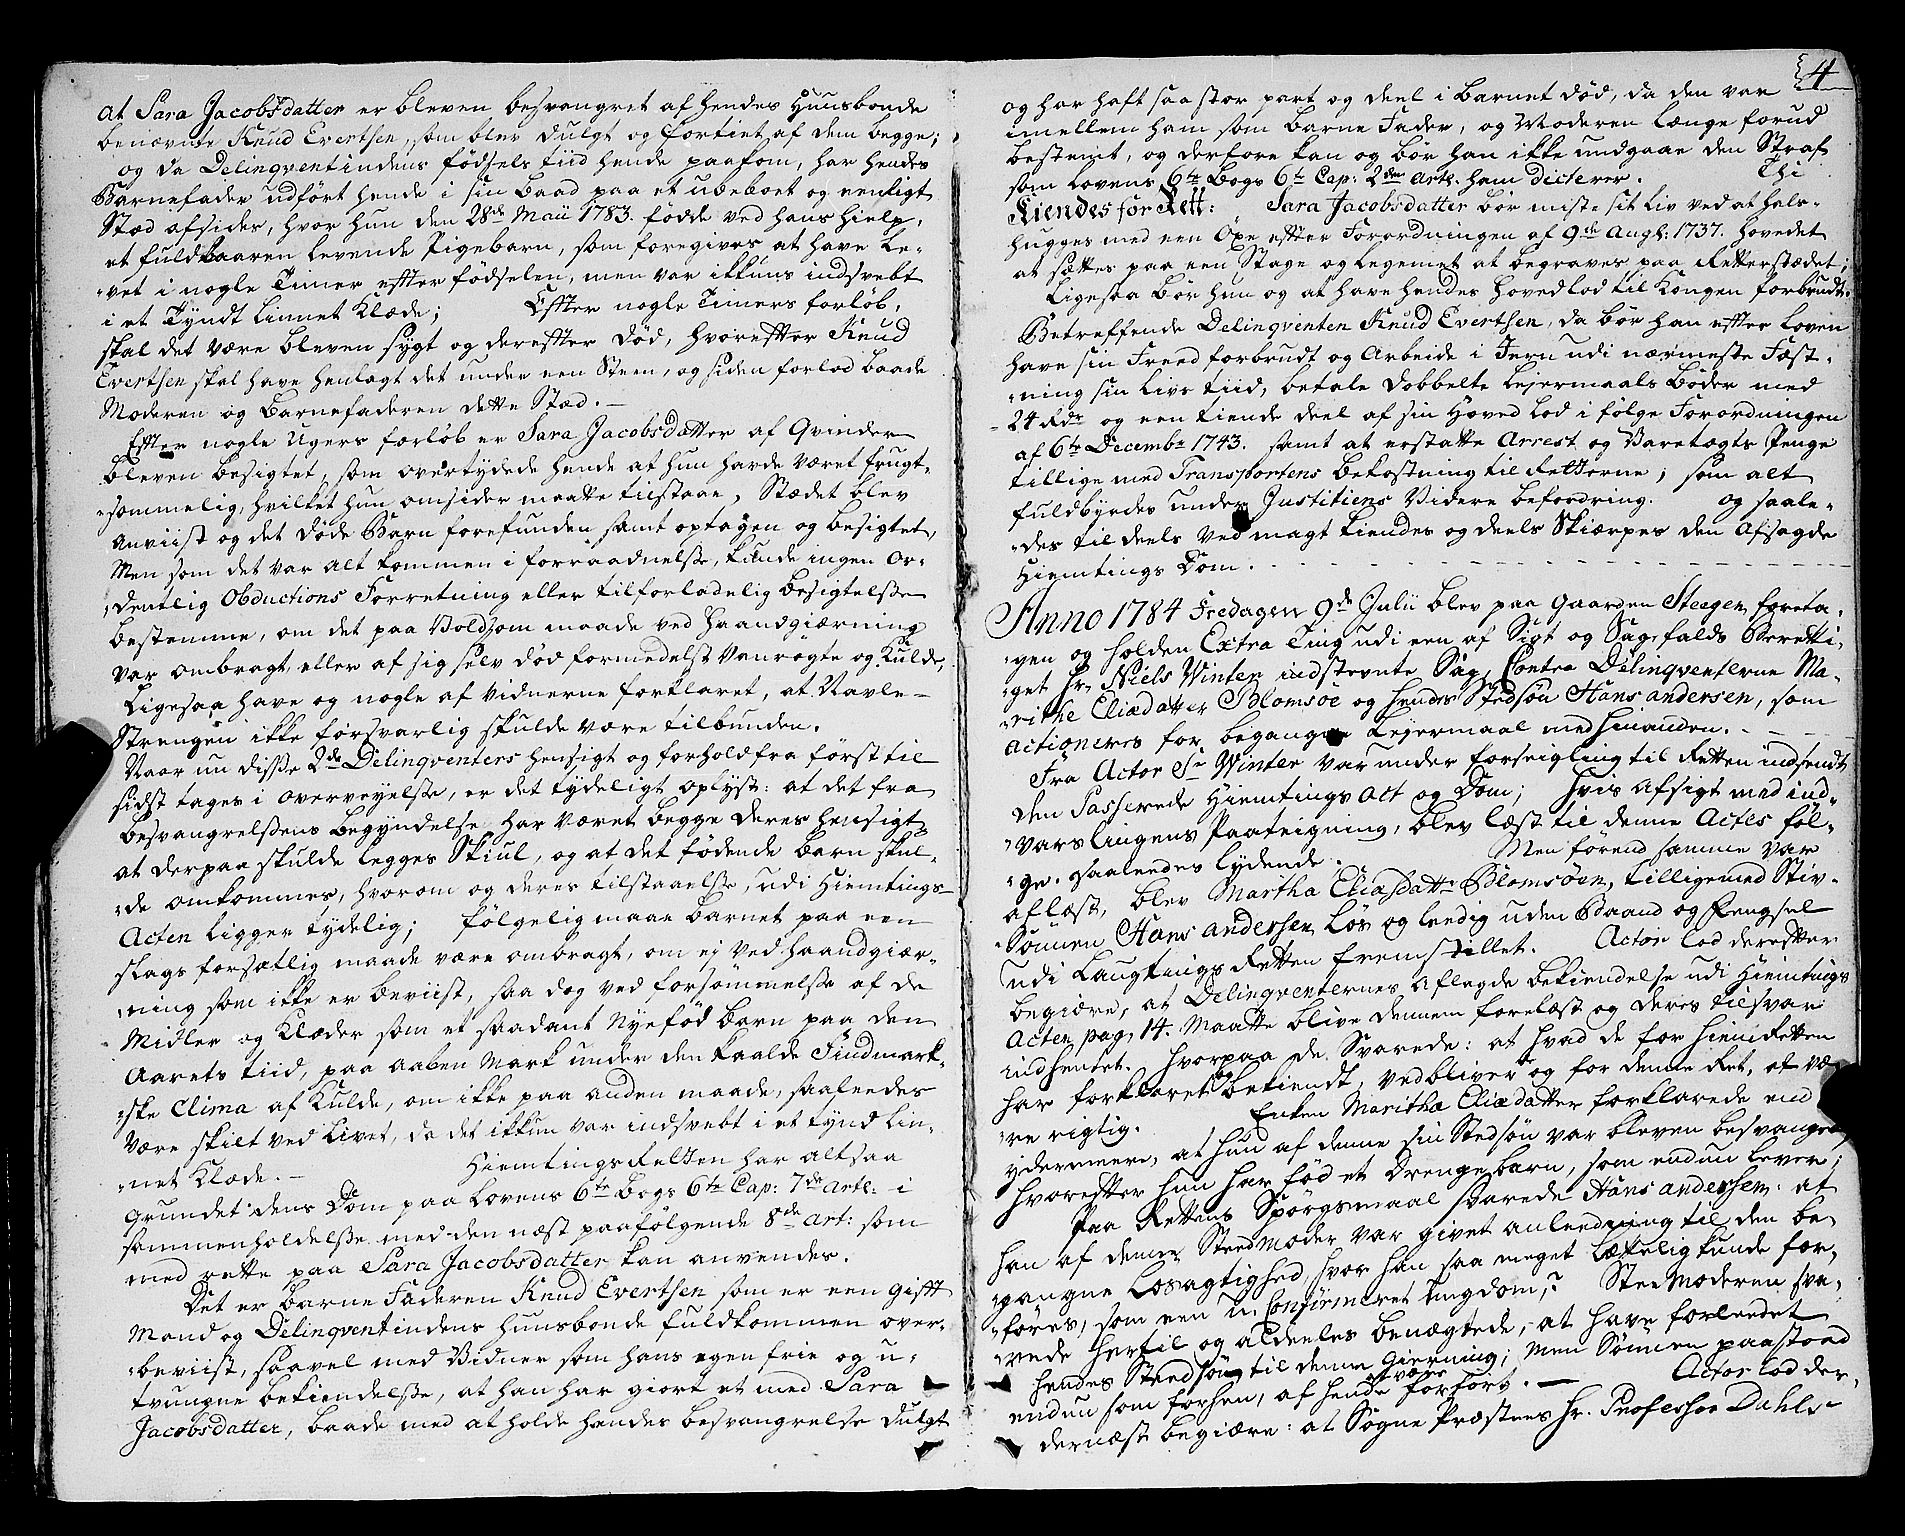 at Sara Jacobsdatter er bleven besvangret af hendes Huusbonde
benævnte Knud Evertsen, som blev dulgt og fortiet af dem begge;
og da Delinqventindens fødsels tiid hende paakom, har hendes
Barnefader udført hende i sin baad paa et ubeboet og eenligt
Stæd afsides, hvor hun den 28de Maii 1783. fødde ved hans hielp,
et fuldbaaren levende Pigebarn, som foregives at have le-
vet i nogle Timer efter fødselen, men var ikkuns indsvebt
i et Tyndt Linnet Klæde; Efter nogle Timers forløb,
skal det være bleven sygt og derefter død, hvorefter Knud
Evertsen skal have henlagt det under een Steen, og siden forlod baade
Moderen og Barnefaderen dette Stæd.
Efter nogle Ugers forløb er Sara Jacobsdatter af Qvinder
bleven besigtet, som overtydede hende at hun havde været frugt-
sommelig, hvilket hun omsider maatte tilstaae, Stædet blev
anviist og det døde Barn forefunden samt optagen og besigtet,
Men som det var alt kommen i forraadnelse, kunde ingen or-
dentlig Obductions Forretning eller tilforladelig besigtelse
bestemme, om det paa Voldsom maade ved Haandgiærning
var ombragt, eller af sig selv død formedelst Vanrøgte og Kulde,
Ligesaa have og nogle af vidnerne forklaret, at Navle-
Strengen ikke forsvarlig skulde være tilbunden.
Naar nu disse 2de Delinqventers hensigt og forhold fra først til
sidst tages i overveyelse, er det tydeligt oplyst: at det fra
besvangrelsens begyndelse har været begge deres hensigt
at derpaa skulde legges Skiul, og at det fødende barn skul-
de omkommes, hvorom og deres tilstaaelse, udi Hiemtings-
Acten ligger tydelig; følgelig maae barnet paa een
slags forsætlig maade være ombragt, om ej ved haandgiær-
ning som ikke er beviist, saa dog ved forsømmelse af de
Midler og Klæder som et saadant Nyefød barn paa den
Aarets tiid, paa aaben Mark under den kaalde Findmark-
ske Clima af Kulde, om ikke paa anden maade, saaledes
være skilt ved Livet, da det ikkun var indsvebt i et tynd Lin-
net Klæde. Hiemtings Retten har altsaa
Grundet dens Dom paa Lovens 6te Bogs 6te Cap: 7de Artl: i
sammenholdelse med den næst paafølgende 8de art: som
med rette paa Sara Jacobsdatter kan anvendes.
Det er barne Faderen Knud Evertsen som er een gift
Mand og Delinqventindens huusbonde fuldkommen over-
beviist, saavel med Vidner som hans egen frie og u-
tvungne bekiendelse, at han har giort et med Sara
Jacobsdatter, baade med at holde hendes besvangrelse dulgt
4
og har haft saa stor part og deel i barnet død, da den var
imellem ham som barne Fader, og Moderen længe forud
bestemt, og derfore kan og bør han ikke undgaae den Straf
som Lovens 6te Bogs 6te Cap: 2den Artl. ham dicterer. Thi
Kiendes for Rett: Sara Jacobsdatter bør miste sit Liv ved at hals-
hugges med een Øxe efter Forordningen af 9de Augs: 1737. hovedet
at sættes paa een Stage og Legemet at begraves paa Retterstædet;
Ligesaa bør hun og at have hendes hovedlod til Kongen forbrudt.
Betreffende Delinqventen Knud Evertsen, da bør han efter Loven
have sin Freed forbrudt og Arbeide i Jern udi nærmeste Fæst-
ning sin Livs tiid, betale dobbelte Lejermaals Bøder med
24 Rdr og een tiende deel af sin Hoved Lod i følge Forordningen
af 6te Decembr 1743. samt at erstatte Arrest og Varetægts Penge
tillige med Transportens bekostning til Retterne; som alt
fuldbyrdes under Justitiens Videre befordring. og saale-
des til deels ved magt kiendes og deels Skiærpes den Afsagde
Hiemtings Dom.
Anno 1784 Fredagen 9de Julii blev paa Gaarden Steegen, foreta-
gen og holden Extra Ting udi een af Sigt og Sagefalds Beretti-
get Hr. Niels Winter indstevnte Sag, Contra Delinqventerne Ma-
rithe Eliædatter Blomsøe og hendes Stedsøn Hans andersen, som
actioneres for begangne Lejermaal med hinanden.
Fra Actor Sr Winter var under forseigling til Retten indsendt
den Passerede Hiemtings Act og Dom; hvis Afsigt med ind-
varslingens Paateigning, blev læst til denne Actes føl-
ge. saaledes lydende. Men førend samme var
aflæst, blev Martha Eliasdattr Blomsøen, tilligemed Stiv-
Sønnen Hans andersen løs og leedig uden Baand og fængsel
udi Laugtings Retten fremstillet. Actor lod derefter
begiøre, at Delinqventernes aflagde bekiendelse udi Hiemtings
Acten pag. 14. Maatte blive dennem forelæst og deres tilsvar
indhentet. Hvorpaa de Svarede: at hvad de for hiemRetten
har forklaret og bekiendt, vedbliver og for denne Ret, at væ-
re rigtig. Enken Maritha Eliædatter forklarede end
ydermere, at hun af denne sin Stedsøn var bleven besvangret,
hvorefter hun har fød et Drengebarn, som endnu lever;
Paa Rettens Spørgsmaal svarede Hans andersen: at
han af denne Steedmoder var givet anleedning til den be-
gangne Løsagtighed, hvor han saa meget lættelig kunde for-
føres, som een u-Confirmeret Ungdom? SteedModeren sva-
rede hertil og aldeeles benægtede, at have forleedet
hendes Steedsøn til denne Gierning; men Sønnen paastoed
endnu som forhen, af hende at være forført. Actor lod der-
dernæst begiære: at Sogne Præstens Hr. Professor Dahls